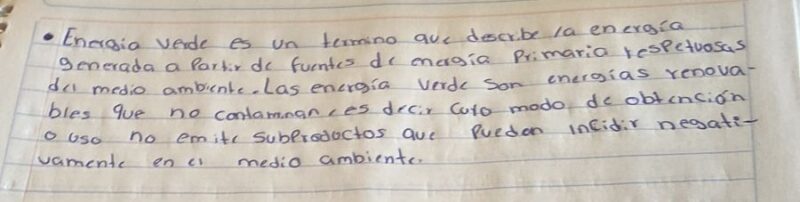 • Energia verde es un termino que describe la energía
generada a Partir de fuentes de energía Primaria respetuosas
del medio ambiente. Las energía verde son energías renova-
bles que no contaminan, es decir cuyo modo de obtención
o uso no emite subproductos que Pueden incidir negati-
vamente en el medio ambiente.